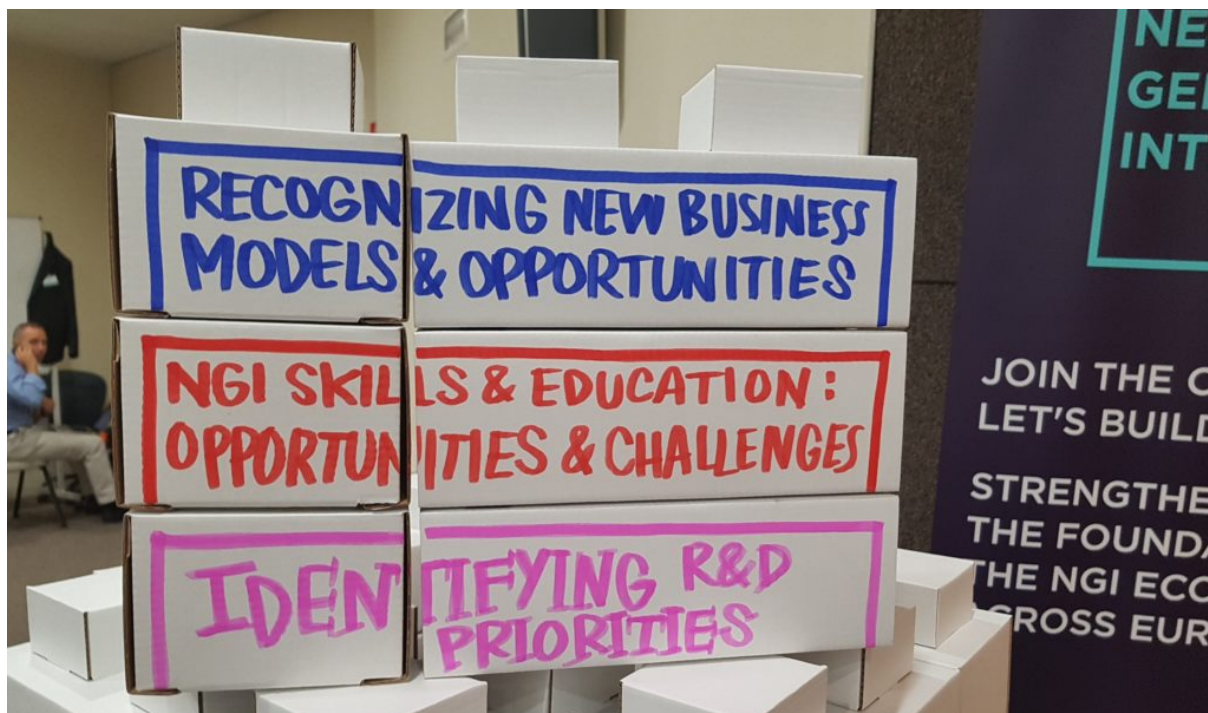 RECOGNIZING NEW BUSINESS
MODELS & OPPORTUNITIES
NGI SKILLS & EDUCATION:
OPPORTUNITIES & CHALLENGES
IDENTIFYING R&D
PRIORITIES
NE
GE
INT
JOIN THE
LET'S BUILD
STRENGTHE
THE FOUNDA
THE NGI ECO
ROSS EUR